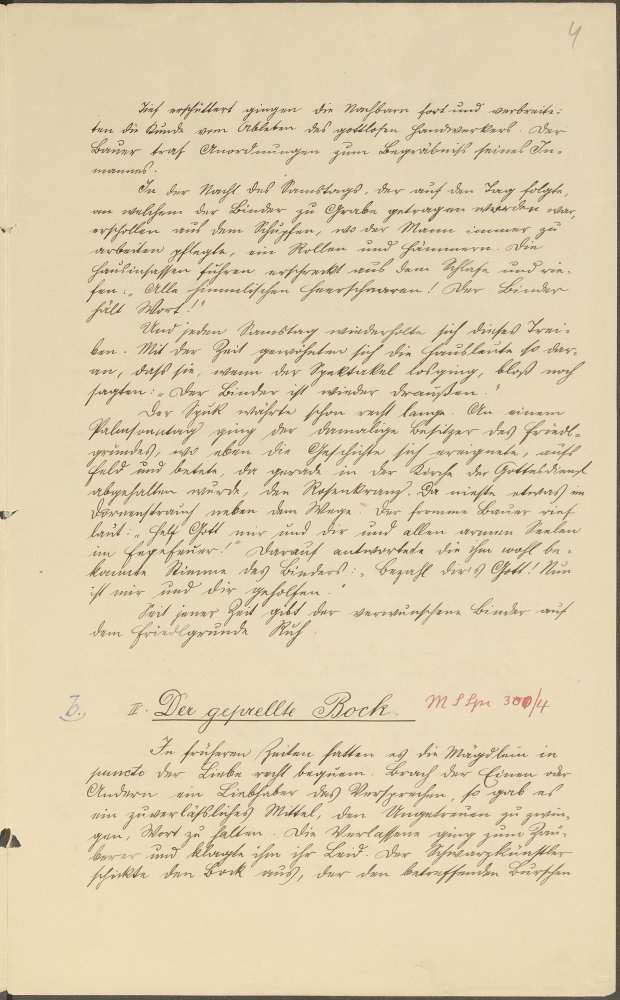 4
Tief erschüttert gingen die Nachbarn fort und verbreite-
ten die Kunde vom Ableben des gottlosen Handwerkers. Der
Bauer traf Anordnungen zum Begräbniß seines In-
mannes.
In der Nacht des Samstags, der auf den Tag folgte,
an welchem der Binder zu Grabe getragen worden war,
erschollen aus dem Schupfen, wo der Mann immer zu
arbeiten pflegte, ein Rollen und Hämmern. Die
Hausinsassen fuhren erschreckt aus dem Schlafe und rie-
fen: „Alle himmlischen Heerschaaren! Der Binder
hält Wort!"
Und jeden Samstag wiederholte sich dieses Trei-
ben. Mit der Zeit gewöhnten sich die Hausleute so dar-
an, daß sie, wenn der Spektakel losging, bloß noch
sagten: „Der Binder ist wieder draußen."
Der Spuk währte schon recht lange. An einem
Palmsonntag ging der damalige Besitzer des Friedl-
grundes, wo eben die Geschichte sich ereignete, aufs
Feld und betete, da gerade in der Kirche der Gottesdienst
abgehalten wurde, den Rosenkranz. Da nießte etwas im
Dornenstrauch neben dem Wege. Der fromme Bauer rief
laut: „Helf Gott mir und dir und allen armen Seelen
im Fegefeuer!" Darauf antwortete die ihm wohl be-
kannte Stimme des Binders: „Bezahl dir's Gott! Nun
ist mir und dir geholfen."
Seit jener Zeit gibt der verwunschene Binder auf
dem Friedlgrunde Ruh.
II. Der geprellte Bock. M S Spr 300/4
In früheren Zeiten hatten es die Mägdlein in
puncto der Liebe recht bequem. Brach der Einen oder
Andern ein Liebhaber das Versprechen, so gab es
ein zuverläßliches Mittel, den Ungetreuen zu zwin-
gen, Wort zu halten. Die Verlassene ging zum Zau-
berer und klagte ihm ihr Leid. Der Schwarzkünstler
schickte den Bock aus, der den betreffenden Burschen